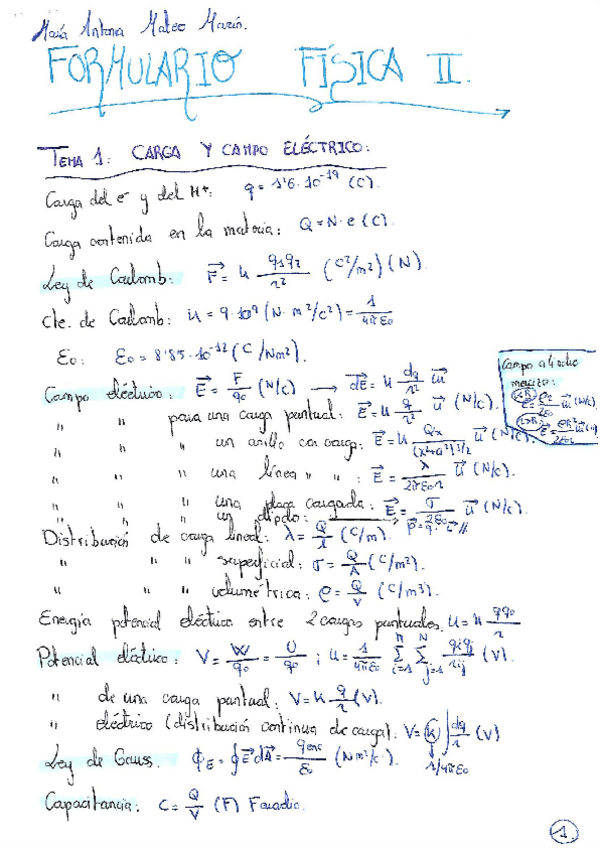 María Antonia Mateo Marín.
FORMULARIO FÍSICA II.
TEMA 1: CARGA Y CAMPO ELÉCTRICO:
Carga del e⁻ y del H⁺: q = 1'6·10⁻¹⁹ (C).
Carga contenida en la materia: Q = N·e (C).
Ley de Coulomb: F⃗ = k q₁q₂/r² (C²/m²) (N).
Cte. de Coulomb: k = 9·10⁹ (N·m²/C²) = 1/4πε₀
ε₀: ε₀ = 8'85·10⁻¹² (C/Nm²).
Campo eléctrico: E⃗ = F/q₀ (N/C) → dE⃗ = k dq/r² u⃗
" " para una carga puntual: E⃗ = k q/r² u⃗ (N/C).
" " " un anillo con carga: E⃗ = k Qx/(x²+a²)^3/2 u⃗ (N/C).
" " " una línea " " : E⃗ = λ/2πε₀r u⃗ (N/C).
" " " una placa cargada: E⃗ = σ/2ε₀ u⃗ (N/C).
" " " un dipolo: → p⃗ = q·
Campo a cilindro
macizo:
r<R: E⃗ = ρr/2ε₀ u⃗ (N/C)
r>R: E⃗ = ρR²/2ε₀r u⃗ (N/C)
Distribución de carga lineal: λ = Q/l (C/m).
" " " superficial: σ = Q/A (C/m²).
" " " volumétrica: ρ = Q/V (C/m³).
Energía potencial eléctrica entre 2 cargas puntuales: U = k qq₀/r
Potencial eléctrico: V = W/q₀ = U/q₀ ; U = 1/4πε₀ Σ(i=1, n) Σ(j=1, N) qiqj/rij (V).
" de una carga puntual: V = k q/r (V).
" eléctrico (distribución continua de carga): V = k ∫ dq/r (V)
1/4πε₀
Ley de Gauss: ϕE = ∮ E⃗ dA⃗ = q enc/ε₀ (Nm²/c).
Capacitancia: C = Q/V (F) Faradio.
1.